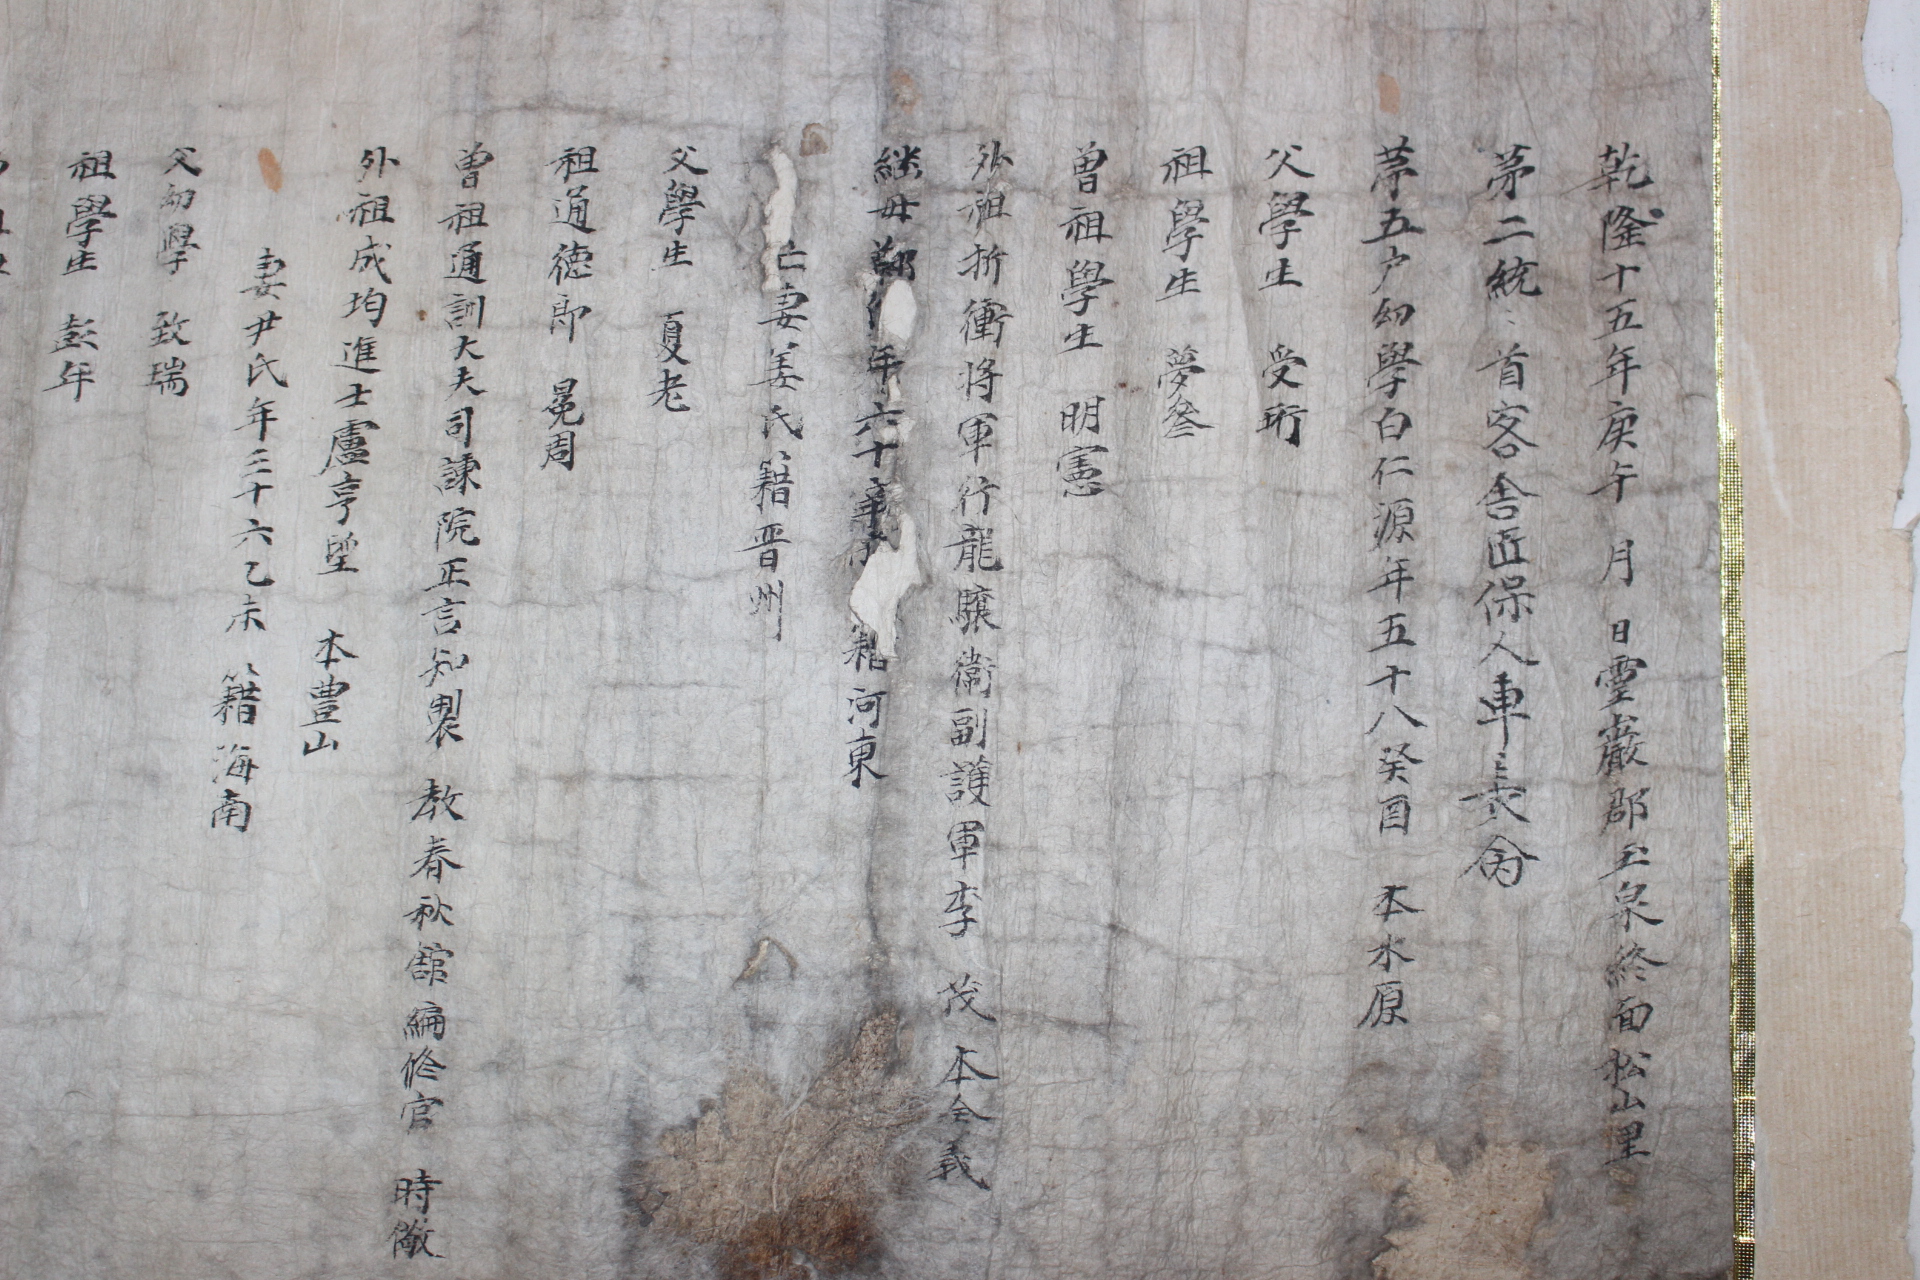 乾隆十五年庚午 月 日靈巖郡玉泉終面松山里
第二統〻首客舍匠保人車長
第五户幼學白仁源年五十八癸酉 本水原
父學生 受珩
祖學生 夢叅
曽祖學生 明憲
外祖折衝将軍行龍驤衛副護軍李 茂 本全義
継母鄭 年六十 籍河東
亡妻姜氏籍晋州
父學生 夏老
祖通德郎 冕周
曽祖通訓大夫司諫院正言知製 教春秋舘編修官 時儆
外祖成均進士盧亨望 本豊山
妻尹氏年三十六乙未 籍海南
父幼學 致瑞
祖學生 彭年